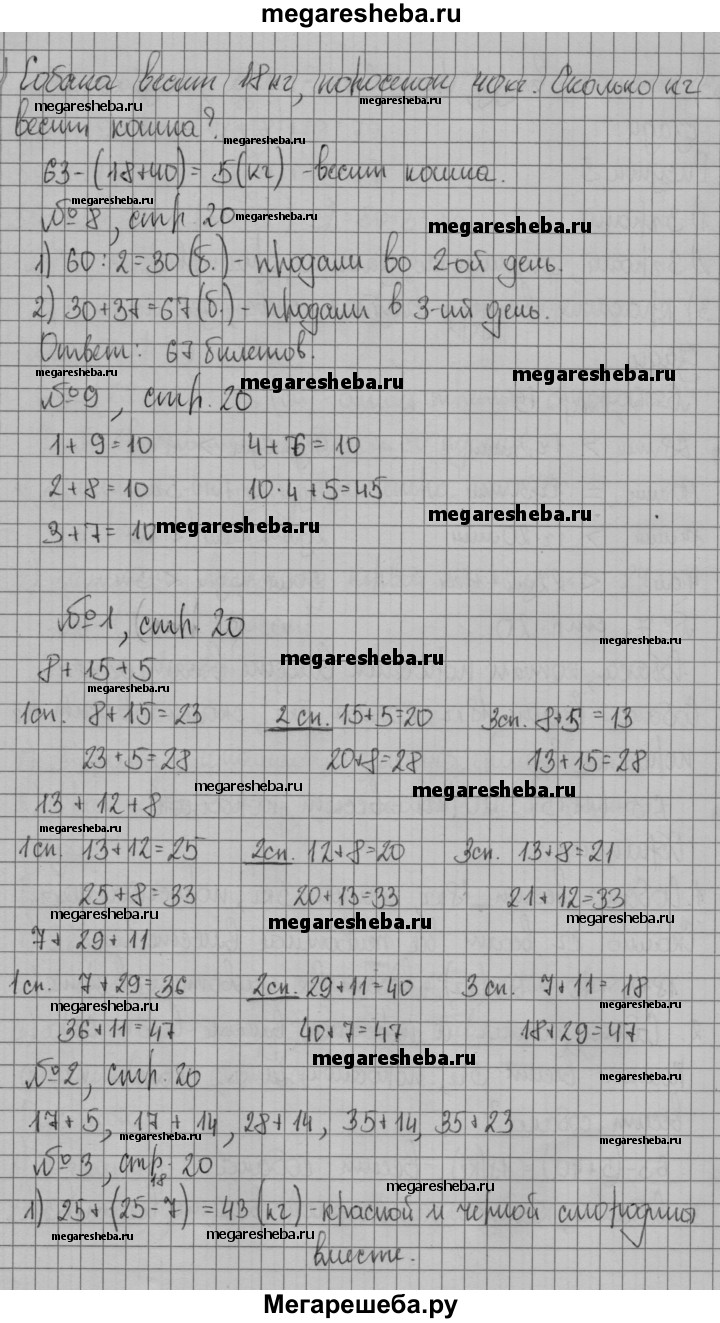 megaresheba.ru
Собака весит 18 кг, поросенок 40 кг. Сколько кг
megaresheba.ru megaresheba.ru
весит кошка?
megaresheba.ru
63-(18+40)= 5(кг) -весит кошка.
megaresheba.ru
№8, стр. 20 megaresheba.ru megaresheba.ru
1) 60:2=30 (б.)-продали во 2-ой день.
2) 30+37=67(б.)- продали в 3-ий день.
Ответ: 67 билетов.
megaresheba.ru megaresheba.ru megaresheba.ru
№9, стр. 20
1+ 9=10 4+6=10
2+8=10 10·4+5=45
3+7= 10 megaresheba.ru megaresheba.ru
№1, стр. 20 megaresheba.ru
8+15+5 megaresheba.ru
megaresheba.ru
1сп. 8+15=23 2 сп. 15+5=20 3сп. 8+5=13
23+5=28 20+8=28 13+15=28
megaresheba.ru megaresheba.ru
13+12+8
megaresheba.ru
1сп. 13+12=25 2сп. 12+8=20 3сп. 13+8=21
25+8=33 20+13=33 21+12=33
megaresheba.ru megaresheba.ru megaresheba.ru
7+29+11
1сп. 7+29=36 2сп. 29+11=40 3 сп. 7+11= 18
megaresheba.ru megaresheba.ru
36+11=47 40+7=47 18+29=47
megaresheba.ru
№2, стр. 20 megaresheba.ru
17+5, 17+14, 28+14, 35+14, 35+23
megaresheba.ru megaresheba.ru
№3, стр. 20
18 megaresheba.ru
1) 25+(25-7)=43(кг)-красной и черной смородины
megaresheba.ru megaresheba.ru megaresheba.ru
вместе.
Мегарешеба.ру